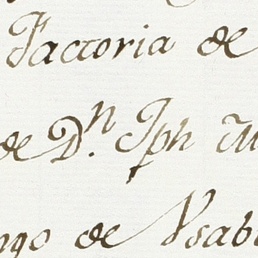 Factoria de
de D.n Jph
ngo de Ysab